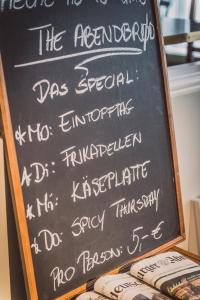 THE ABENDBROT
DAS SPECIAL:
* MO: EINTOPFTAG
* DI: FRIKADELLEN
* MI: KÄSEPLATTE
* DO: SPICY THURSDAY
PRO PERSON: 5,- €